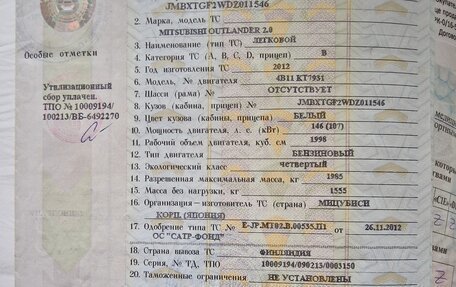 JMBXTGF2WDZ011546
2. Марка, модель ТС
MITSUBISHI OUTLANDER 2.0
3. Наименование (тип ТС) ЛЕГКОВОЙ
4. Категория ТС (А, В, С, D, прицеп) В
5. Год изготовления ТС 2012
6. Модель, № двигателя 4B11 KT7931
7. Шасси (рама) № ОТСУТСТВУЕТ
8. Кузов (кабина, прицеп) № JMBXTGF2WDZ011546
9. Цвет кузова (кабины, прицепа) БЕЛЫЙ
10. Мощность двигателя, л. с. (кВт) 146 (107)
11. Рабочий объем двигателя, куб. см 1998
12. Тип двигателя БЕНЗИНОВЫЙ
13. Экологический класс четвертый
14. Разрешенная максимальная масса, кг 1985
15. Масса без нагрузки, кг 1555
16. Организация – изготовитель ТС (страна) МИЦУБИСИ
КОРП. (ЯПОНИЯ)
17. Одобрение типа ТС № E-JP.MT02.B.00535.П1 от 26.11.2012
ОС "САТР-ФОНД"
18. Страна вывоза ТС ФИНЛЯНДИЯ
19. Серия, № ТД, ТПО 10009194/090213/0003150
20. Таможенные ограничения НЕ УСТАНОВЛЕНЫ
Особые отметки
Утилизационный
сбор уплачен.
ТПО № 10009194/
100213/ВБ-6492270